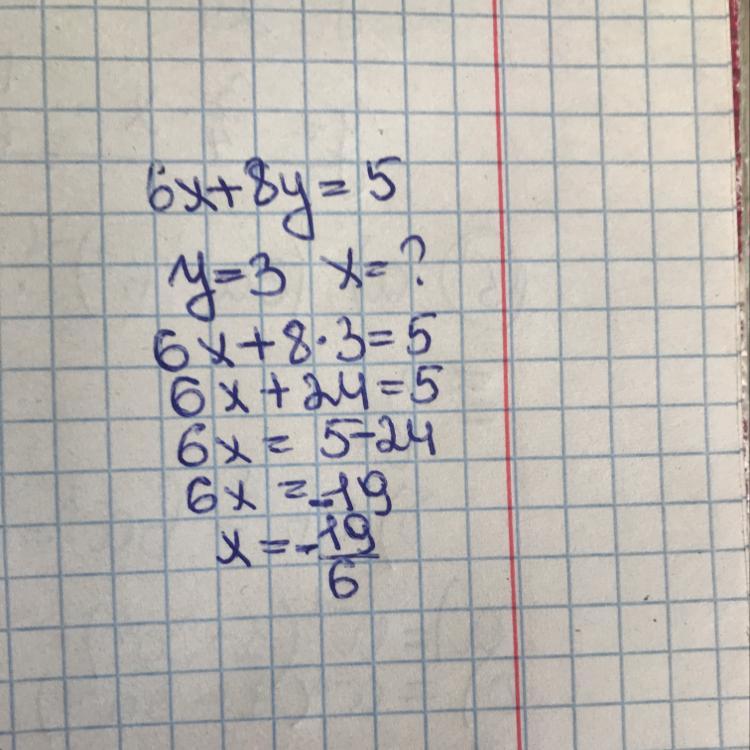 6x+8y=5
y=3 x=?
6x+8·3=5
6x+24=5
6x=5-24
6x=-19
x=-19/6